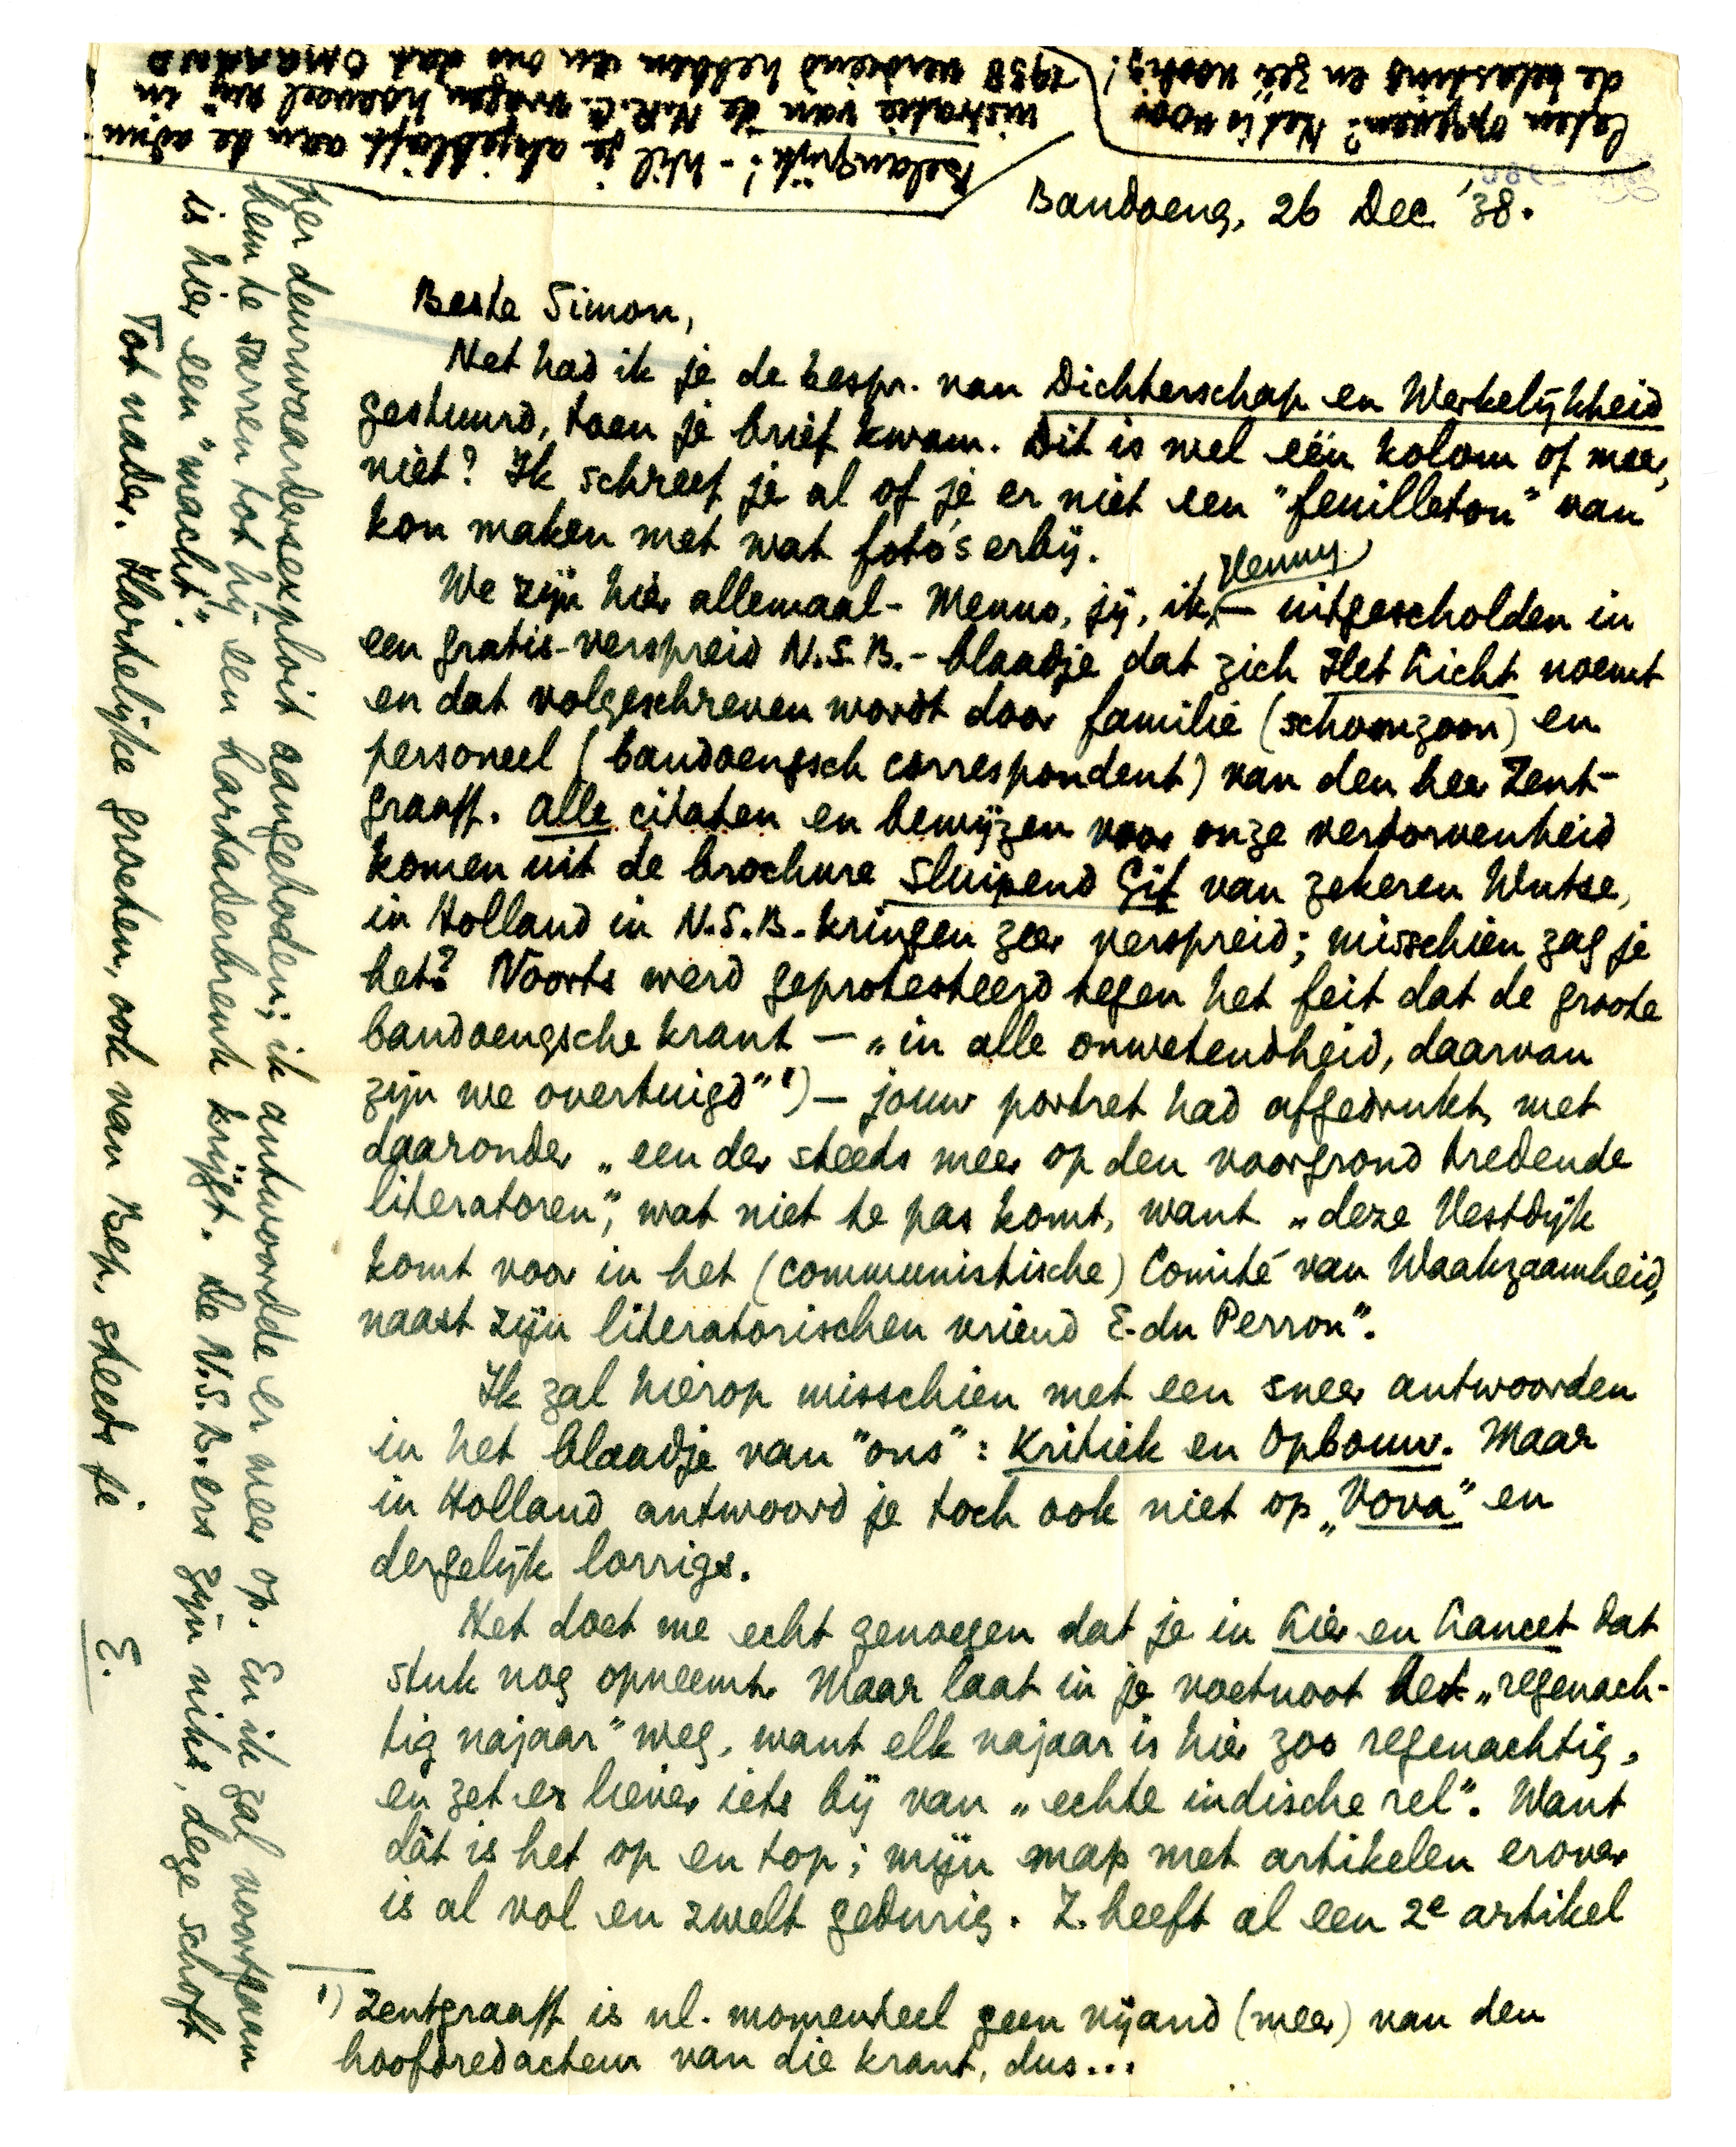 Bandoeng, 26 Dec. '38.
Beste Simon,
Net had ik je de bespr. van Dichterschap en Werkelijkheid
gestuurd, toen je brief kwam. Dit is wel één kolom of meer,
niet? Ik schreef je al of je er niet een "feuilleton" van
kon maken met wat foto's erbij.
We zijn hier allemaal - Menno, jij, ik, Henny - uitgescholden in
een gratis-verspreid N.S.B.-blaadje dat zich Het Licht noemt
en dat volgeschreven wordt door familie (schoonzoon) en
personeel (bandoengsch correspondent) van den heer Zent-
graaff. Alle citaten en bewijzen voor onze verdorvenheid
komen uit de brochure Sluipend Gif van zekeren Wutse,
in Holland in N.S.B.-kringen zeer verspreid; misschien zag je
het? Voorts werd geprotesteerd tegen het feit dat de groote
bandoengsche krant — „in alle onwetendheid, daarvan
zijn we overtuigd" ¹) — jouw portret had afgedrukt, met
daaronder „een der steeds meer op den voorgrond tredende
literatoren", wat niet te pas komt, want „deze Vestdijk
komt voor in het (communistische) Comité van Waakzaamheid,
naast zijn literatorischen vriend E. du Perron".
Ik zal hierop misschien met een sneer antwoorden
in het blaadje van "ons": Kritiek en Opbouw. Maar
in Holland antwoord je toch ook niet op „Vova" en
dergelijk lorrigs.
Het doet me echt genoegen dat je in Lier en Lancet dat
stuk nog opneemt. Maar laat in je voetnoot het „regenach-
tig najaar" weg, want elk najaar is hier zoo regenachtig,
en zet er liever iets bij van „echte indische rel". Want
dàt is het op en top; mijn map met artikelen erover
is al vol en zwelt gedurig. Z. heeft al een 2e artikel
¹) Zentgraaff is nl. momenteel geen vijand (meer) van den
hoofdredacteur van die krant, dus...
per deurwaardersexploit aangeboden; ik antwoordde er meer op. En ik zal voortgaan
hem te sarren tot hij een hartaderbreuk krijgt. De N.S.B.ers zijn niks, deze schoft
is hier een "macht".
Tot nader. Hartelijke groeten, ook van Bep, steeds je
E.
Belangrijk! - Wil je alsjeblieft aan de admi-
nistratie van de N.R.C. vragen hoeveel wij in
1938 verdiend hebben en ons dat omgaand
laten opgeven? Het is voor
de belasting en zéér noodig!